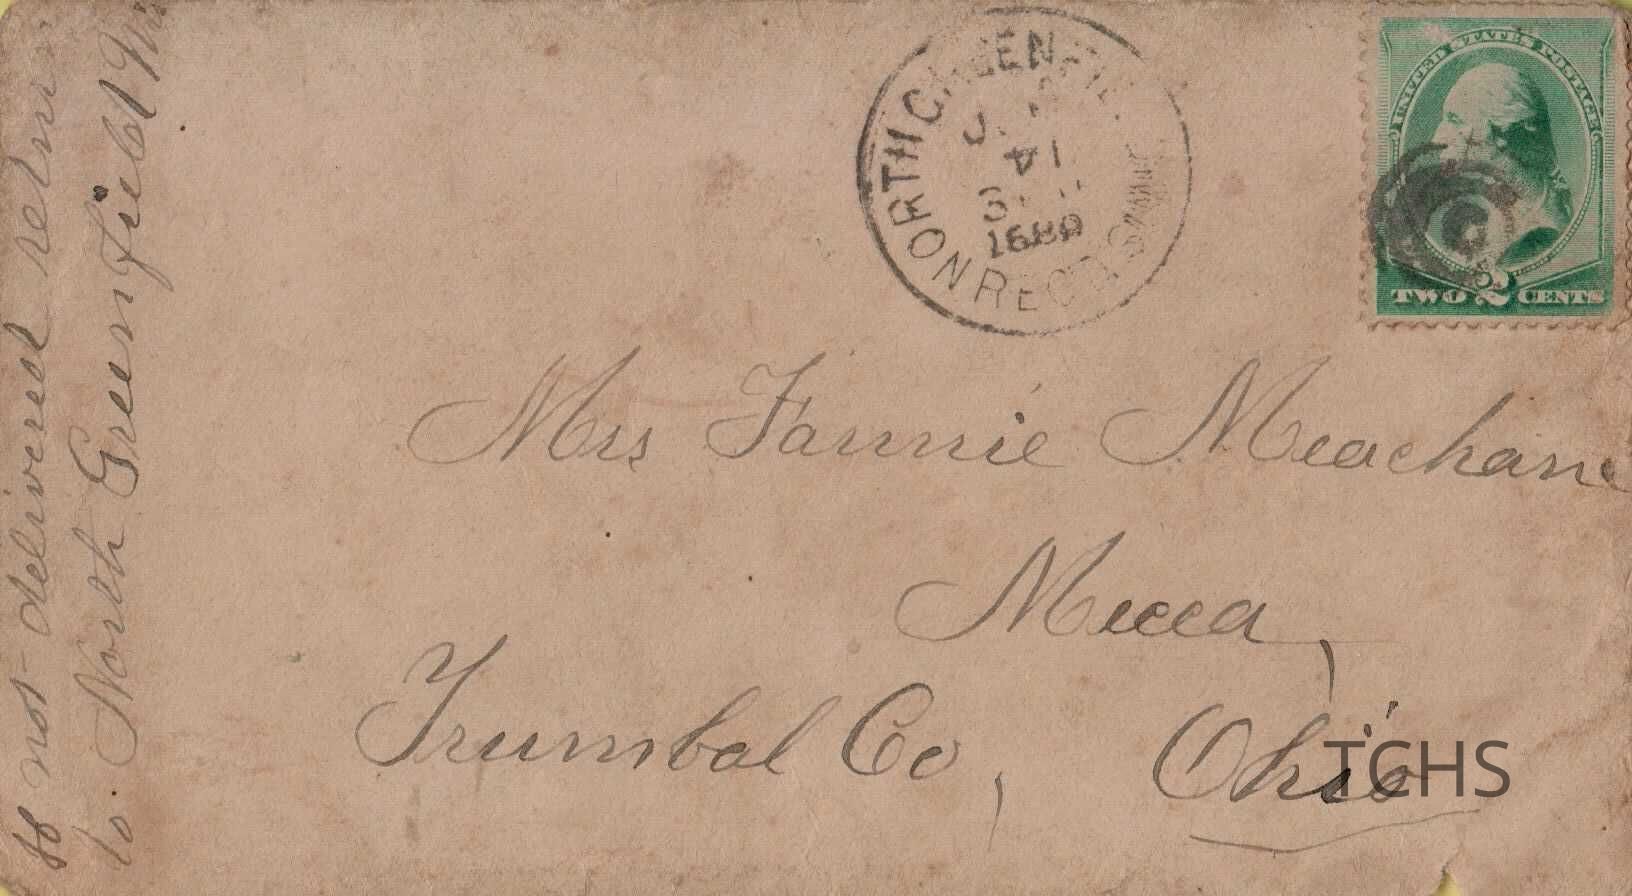 If not delivered return
to North Greenfield Wis
NORTH GREENFIE
REC'D
14
1889
UNITED STATES POSTAGE
TWO 2 CENTS
Mrs Fannie Meacham
Mecca,
Trumbal Co, Ohio
TCHS